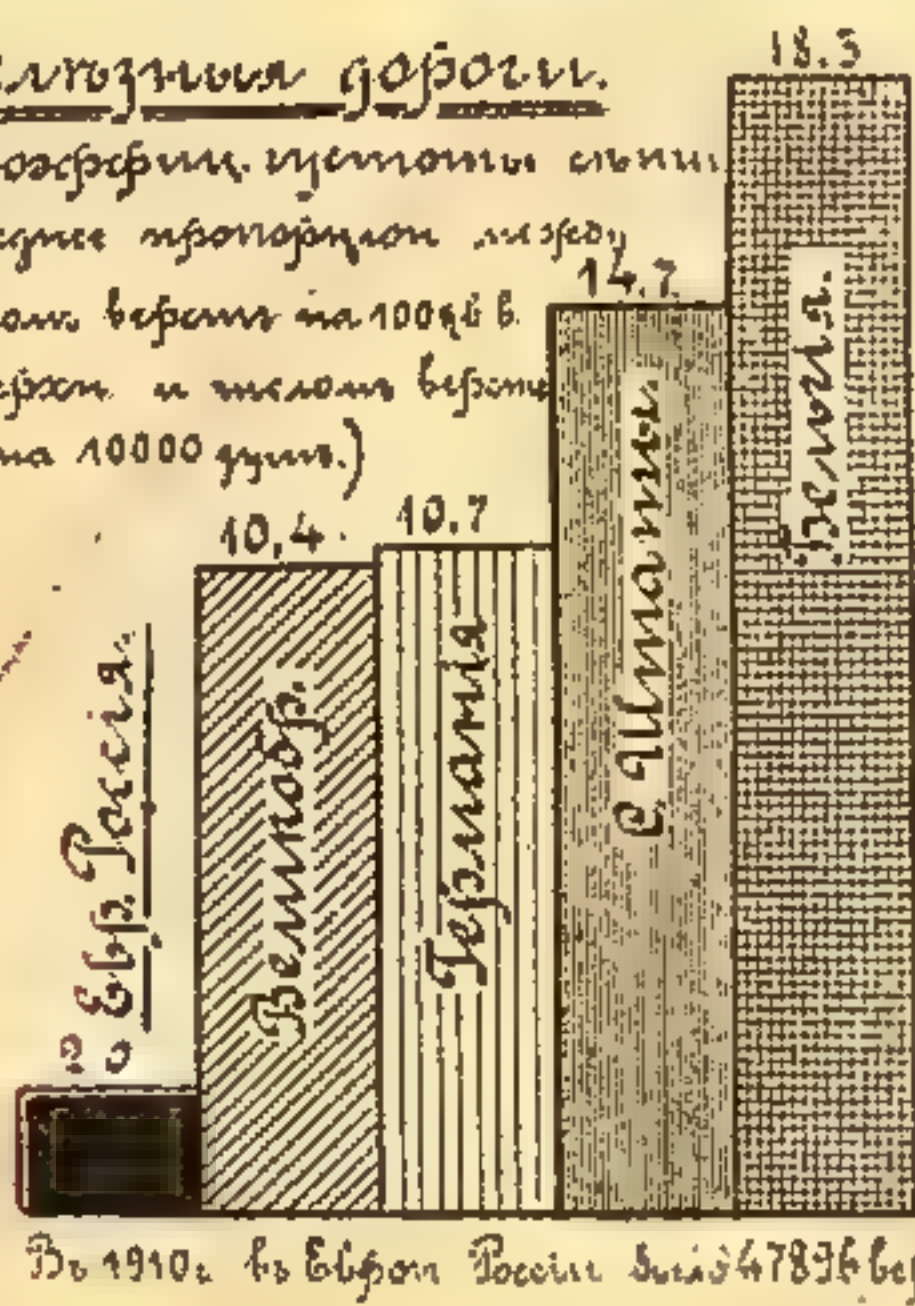 лѣзныя дороги.
коэффиц. густоты сѣти
реднее пропорцıон между
ломъ верстъ на 100 кв в.
ерхн. и числомъ верстъ
на 10000 душъ.)
18.5
14.7.
10,4.
10.7
Евр. Россія.
Великобр.
Германія
С. Штаты.
Бельгія.
Въ 1910г въ Европ России было 47896 вер